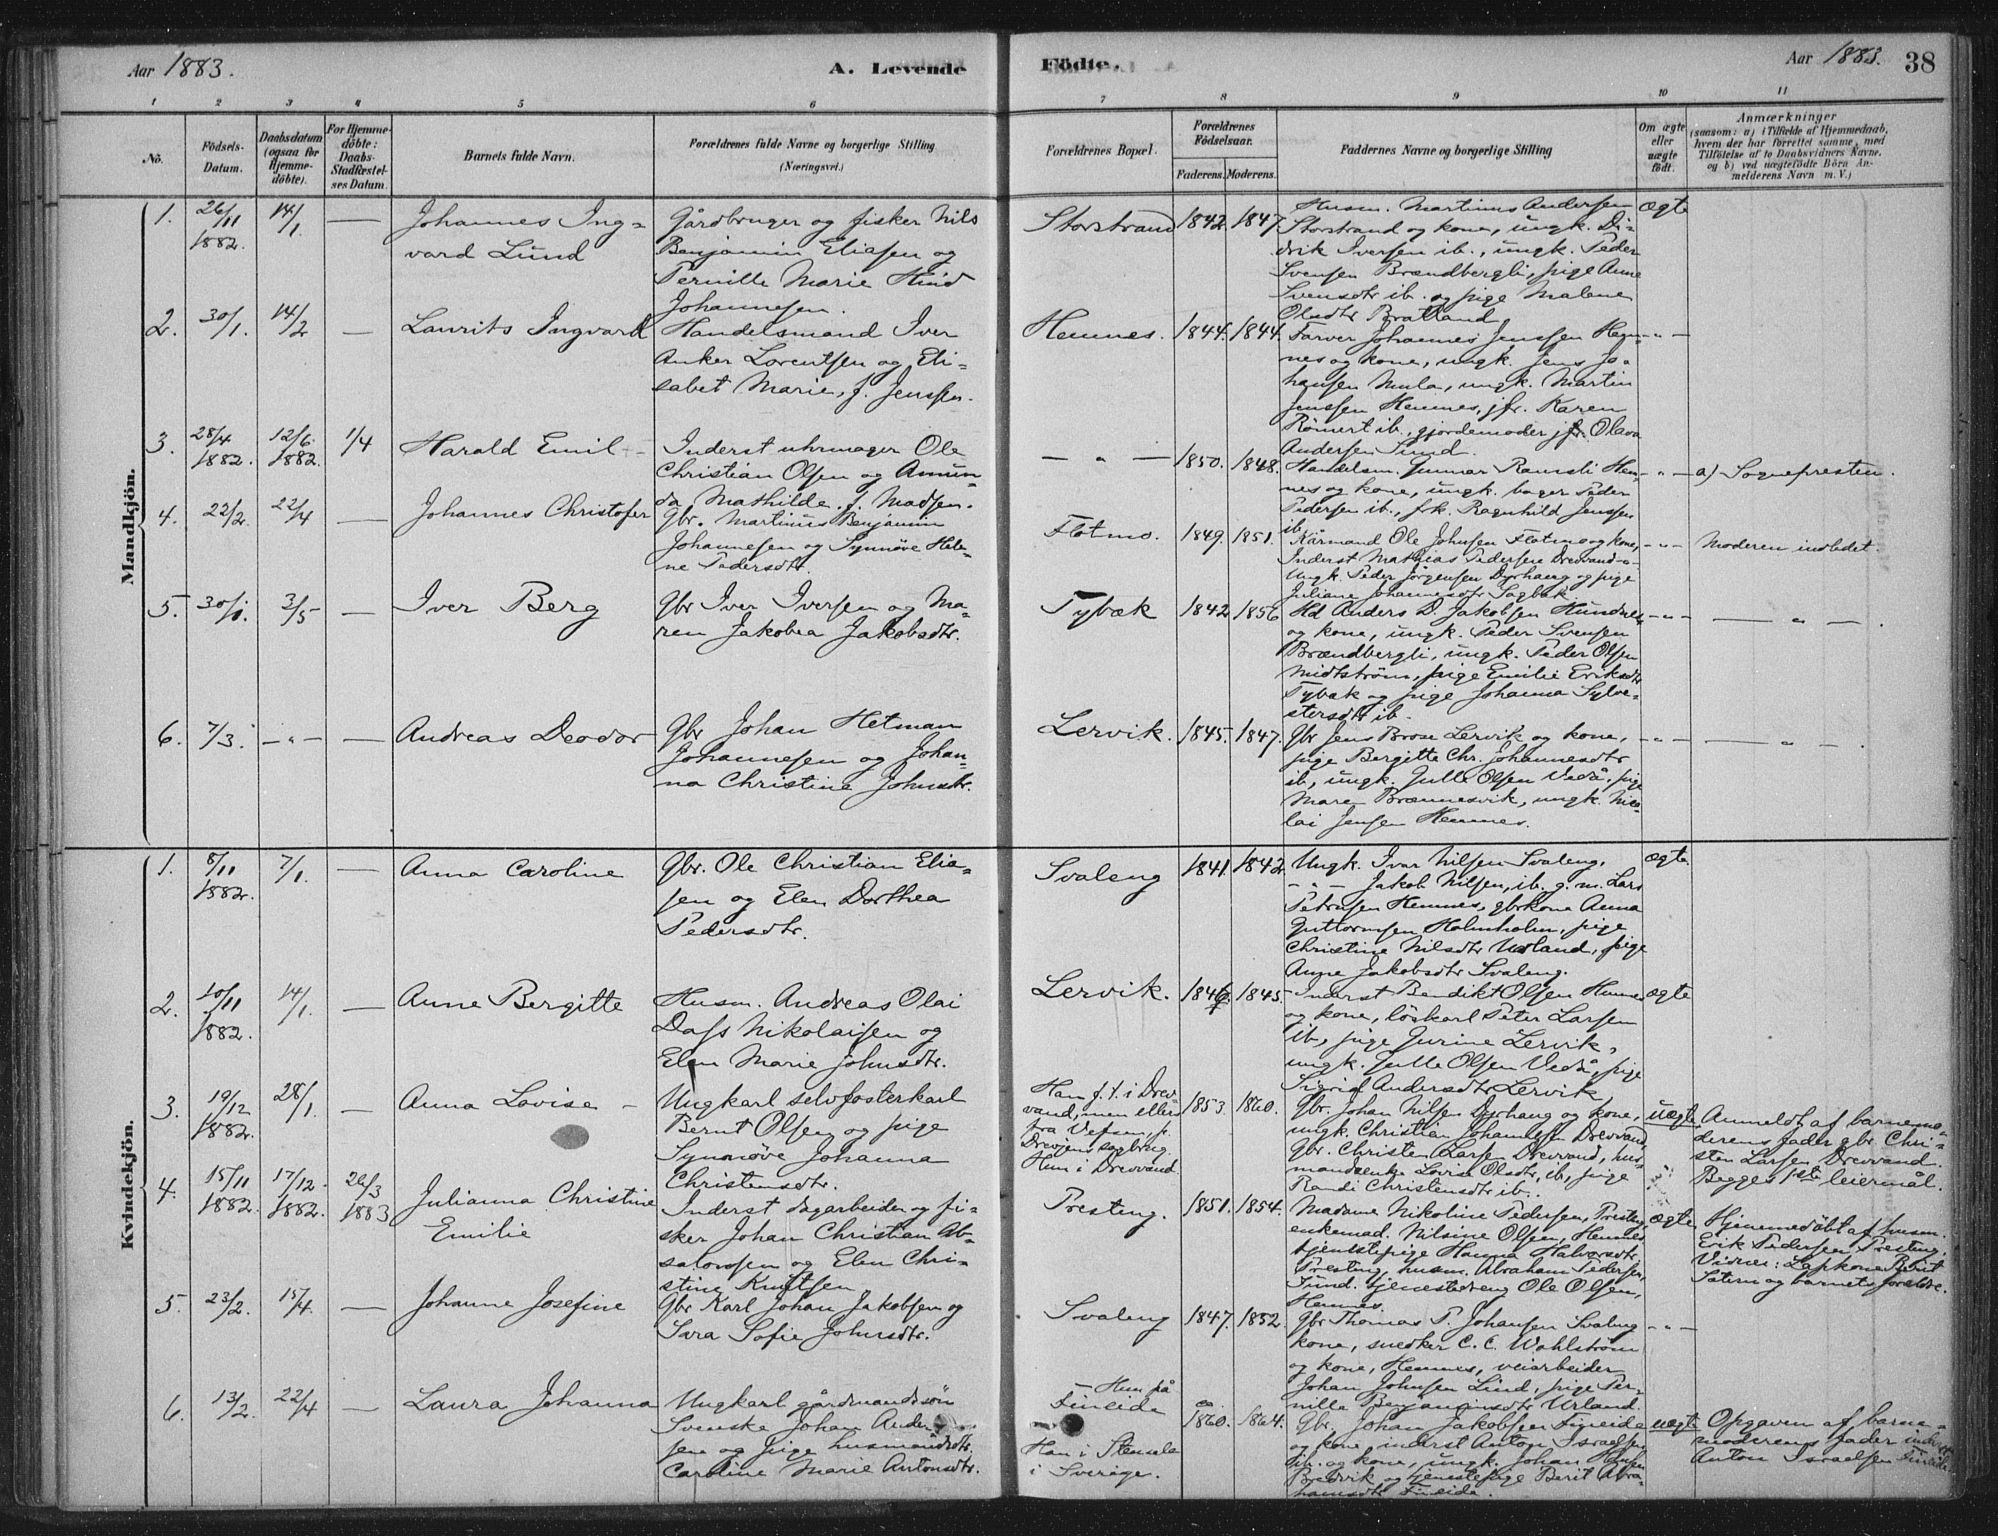 Aar 1883.
A. Levende
Födte.
Aar 1883.
38
1 2 3 4 5 6 7 8 9 10 11
No.
Födsels-Datum.
Daabsdatum (ogsaa for Hjemmedöbte).
For Hjemmedöbte: Daabs-Stadfæstelses Datum.
Barnets fulde Navn.
Forældrenes fulde Navne og borgerlige Stilling (Næringsvei.)
Forældrenes Bopæl.
Forældrenes Födselsaar.
Faderens. Moderens.
Faddernes Navne og borgerlige Stilling
Om ægte eller uægte födt.
Anmærkninger
(saasom: a) i Tilfælde af Hjemmedaab,
hvem der har forrettet samme, med
Tilföielse af to Daabsvidners Navne.
og b) ved uægtefödte Börn Anmelderens Navn m. V.)
Mandkjön.
1. 26/11 1882. 14/1. —
Johannes Ing-
vard Lund
Gårdbruger og fisker Nils
Benjamin Eliasen og
Pernille Marie Hind
Johannesen.
Storstrand 1842. 1847.
Husm. Martinus Andersen
Storstrand og kone, ungk. Di-
drik Iversen ib., ungk. Peder
Svensen Brændbergli, pige Anne
Svensdtr ib. og pige Malene
Olsdtr Bratland.
ægte
2. 30/1. 14/2 —
Laurits Ingvard
Handelsmand Iver
Anker Lorentsen og Eli-
sabet Marie, f. Jenssen.
Hemnes. 1844. 1844.
Farver Johannes Jenssen Hem-
nes og kone, ungk. Jens Jo-
hansen Mula, ungk. Martin
Jenssen Hemnes, jfr. Karen
Römert ib., gjordemoder jfr. Olava
Andersen Sund.
— " —
3. 28/4 1882. 12/6. 1882. 1/4
Harald Emil
Inderst uhrmager Ole
Christian Olsen og Amun-
da Mathilde, f. Madsen.
— " — 1850. 1848.
Handelsm. Gunnar Ramsli Hem-
nes og kone, ungk. bager Peder
Pedersen ib., frk. Ragnhild Jenssen
ib.
— " —
a) Sognepresten.
4. 22/2. 22/4 —
Johannes Christofer
Gbr. Martinus Benjamin
Johannesen og Synnöve Hele-
ne Pedersdtr.
Flotmo. 1849. 1851.
Kårmand Ole Johnsen Flotmo og kone,
Inderst Mathias Pedersen Drevvand
Ungk. Peder Jörgensen Dyrhaug og pige
Juliane Johannesdtr Sagbak.
— " —
Moderen indledet.
5. 30/1. 3/5 —
Iver Berg
Gbr Iver Iversen og Ma-
ren Jakobea Jakobsdtr.
Tybæk 1842 1856
Hd Anders D. Jakobsen Hundnes
og kone, ungk. Peder Svensen
Brændbergli, ungk. Peder Olsen
Midtström, pige Emilie Eriksdtr
Tybæk og pige Johanna Sylve-
stersdtr ib.
— " —
— " — .
6. 7/3. — " — —
Andreas Deodor
Gbr Johan Hetman
Johannesen og Johan-
na Christine Johnsdtr.
Lervik. 1845. 1847.
Gbr Jens Brose Lervik og kone,
pige Bergitte Chr. Johannesdtr
ib, ungk. Julle Olsen Vedå, pige
Maren Brennesvik, ungk. Nico-
lai Jensen Hemnes.
— " —
— " — .
Kvindekjön.
1. 8/11 1882. 7/1. —
Anna Caroline
Gbr. Ole Christian Elia-
sen og Elen Dorthea
Pedersdtr.
Svaleng 1841. 1842.
Ungk. Ivar Nilsen Svaleng,
— " — Jakob Nilsen, ib. g. m. Lars
Petersen Hemnes, gbrkone Anna
Guttormsen Holmholm, pige
Christine Nilsdtr Urland, pige
Anne Jakobsdtr Svaleng.
ægte
2. 10/11 1882. 14/1. —
Anne Bergitte
Husm. Andreas Olai
Dass Nikolaisen og
Elen Marie Johnsdtr.
Lervik. 1846. 1845.
Inderst Bendikt Olsen Hemnes
og kone, löskarl Peter Larsen
ib., pige Jurine Lervik,
ungk. Julle Olsen Vedå, pige
Sigrid Andersdtr Lervik
ægte
3. 19/12 1882. 28/1. —
Anna Lovise
Ungkarl selvfosterkarl
Bernt Olsen og pige
Synnöve Johanna
Christensdtr.
Han f. t. i Drev-
vand, men ellers
fra Vefsen, p.
Drevjens sagbrug.
Hun i Drevvand.
1853. 1860.
Gbr. Johan Nilsen Dyrhaug og kone,
ungk. Christian Johannesen Drevvand,
Gbr. Christen Larsen Drevvand, hus-
mandsenke Lovise Olsdtr, ib, pige
Randi Christensdtr ib.
uægte
Anmeldt af barnemo-
derens fader gbr. Chri-
sten Larsen Drevvand.
Begges 1ste leiermål.
4. 15/11 1882. 17/12. 1882. 26/3 1883
Julianna Christine
Emilie
Inderst dagarbeider og fi-
sker Johan Christian Ab-
salonsen og Elen Chri-
stine Knutsen
Presteng. 1851. 1854.
Madame Nikoline Pedersen, Presteng
enkemad. Nilsine Olsen, Hemnes
tjenestepige Hanna Halvorsdtr
Presteng, husm. Abraham Pedersen,
Sund. tjenestedreng Ole Olsen,
Hemnes.
ægte
Hjemmedöbt af husm.
Erik Pedersen Presteng.
Vidner: Lapkone Berit
og barnets forældre.
5. 23/2. 15/4. —
Johanne Josefine
Gbr Karl Johan Jakobsen og
Sara Sofie Johnsdtr.
Svaleng 1847. 1852.
Gbr Thomas P. Johansen Svaleng
kone, snedker C. C. Wahlström
og kone, Hemnes, veiarbeider
Johan Johnsen Lind, pige Per-
nille Benjaminsdtr Urland.
— " —
6. 13/2. 22/4 —
Laura Johanna
Ungkarl gårdmandssön
Svenske Johan Ander-
sen og pige husmandsdtr.
Caroline Marie Antonsdtr.
Hun på
Fineide
Han i Stensele
i Sverige.
ca. 1860. 1864.
Gbr. Johan Jakobsen Fineide
og kone, inderst Anton Israelsen
ib. og kone, ungk. Johan Hansen
Bredvik og tjenestepige Berit Abra-
hamsdtr Fineide.
uægte
Opgaven af barne-
moderens fader inderst
Anton Israelsen Fineide.